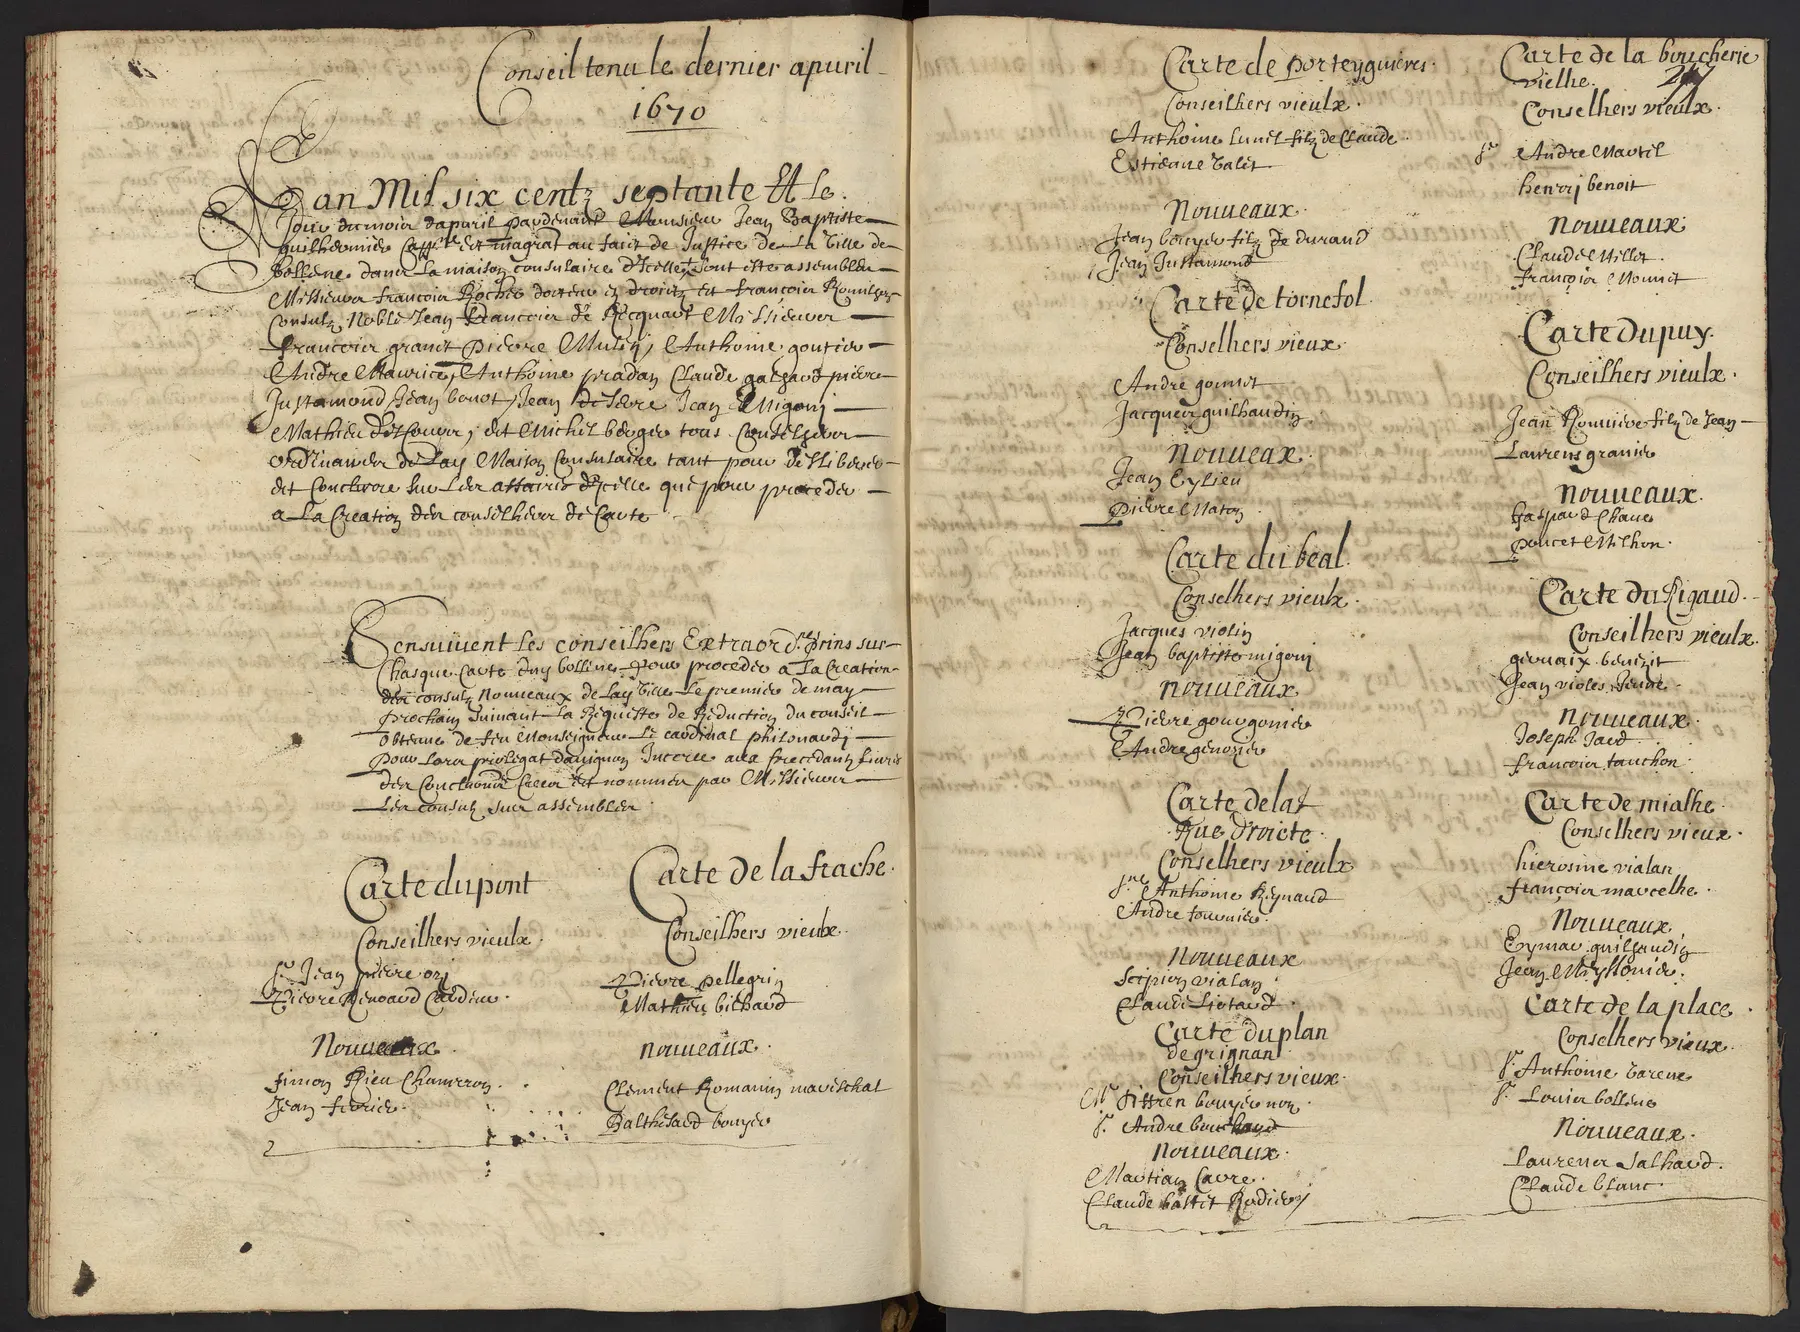 Conseil tenu le dernier apuril
1670
Lan Mil six centz septante Et le
Jour du mois dapuril pardeuant Monsieur Jean Baptiste
guilhermier cappne et magrat au faict de Justice de la Ville de
bollene dans la maison consulaire d'Icelle sont este assembles
Messieurs francois Rocher docteur ez droitz et francois
Consulz Noble Jean francois de Ricquart Messieurs
francois granet pierre Anthoine goutier
Andre Maurice, Anthoine pradan Claude galhard pierre
Justamond, Jean bonot, Jean de serre Jean Migoni
Mathieu et Michel berger tous Conselhers
ordinaires de lad Maison Consulaire tant pour deliberer
et Conclurre sur les affaires d'Icelle que pour proceder
a La Creation des conselhers de Carte
Sensuiuent les conseilhers Extraord.rs prins sur
Chasque Carte dud bollene pour proceder a La Creation
des consulz Nouueaux de Lad Ville Le premier de may
prochain suiuant La Requeste de Reduction du conseil
obtenue de feu Monseigneur Le cardinal philonardj
pour Lors prolegat dauignon Inceree aux precedantz liures
des Conclusions Creés et nommes par Messieurs
Les consulz sur assembles
Carte du pont
Conseilhers vieulx
sr Jean pierre orj
Pierre Renoard Cardeur
Nouueaux
simon Rieu Chamrron
Jean feurier
Carte de la frache
Conseilhers vieulx
Pierre pellegrin
Mathieu bichard
nouueaux
Clement Romanin mareschal
Balthesard bouyer
Carte de porteyguieres
Conseilhers vieulx
Anthoine lunel filz de Claude
Estienne Valet
Nouueaux
Jean bouyer filz de durand
Jean Justamond
Carte de tornefol
Conselhers vieux
Andre gonnet
Jacques guilhaudin
Nouueax
Jean Eylieu
Pierre Maton
Carte du beal
Conselhers vieulx
Jacques violin
Jean baptiste migonj
Nouueaux
Pierre gourgonier
Andre genouier
Carte de la
Rue droicte
Conselhers vieulx
sre Anthoine Reynaud
Andre fournier
Nouueaux
Scipion vialan
Claude Liotard
Carte du plan
de grignan
Conseilhers vieux
bouyer nore
sr Andre bouchard
Nouueaux
Martian Carre
Claude battit Rodier
Carte de la boucherie
vielhe
247
Conselhers vieulx
sr Andre Martil
henrj benoit
Nouueaux
Claude Millet
francois Monnet
Carte du puy
Conseilhers vieulx
Jean Romieu filz de Jean
Laurens granier
Nouueaux
gaspard Chaue
poncet Milhon
Carte du Rigaud
Conseilhers vieulx
geruaix benezit
Jean violes Jeune
Nouueaux
Joseph Jard
francois fauchon
Carte de mialhe
Conselhers vieux
hierosme vialan
françois marcelhe
Nouueaux
Eymar guilhaudin
Jean Meyssonier
Carte de la place
Conselhers vieux
sr Anthoine Varene
sr Louis bollene
Nouueaux
Laurens Salhard
Claude blanc